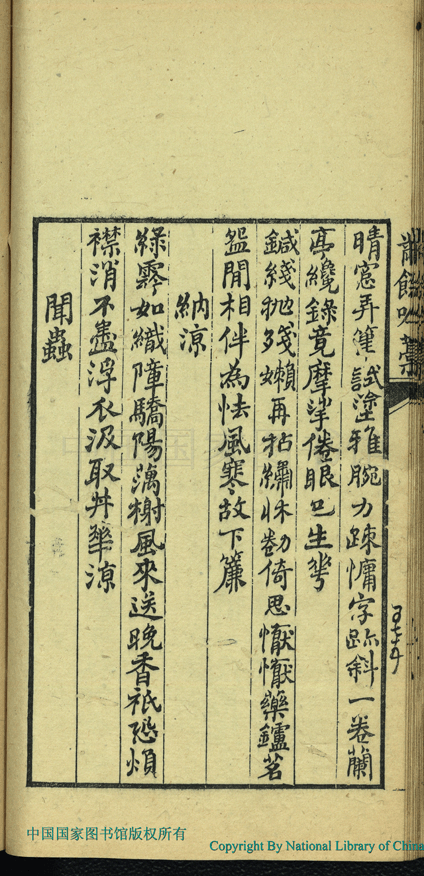 餘吟藁
晴窻弄筆試塗雅腕力踈慵字跡斜一卷蘭
亭纔錄竟摩挲倦眼已生花
鍼綫抛殘嬾再拈繡牀勌倚思懨懨藥鑪茗
盌閒相伴為怯風寒故下簾
納涼
綠雲如織障驕陽蕅榭風來送晚香祇恐煩
襟消不盡浮瓜汲取井華涼
聞蟲
中国国家图书馆版权所有
Copyright By National Library of China